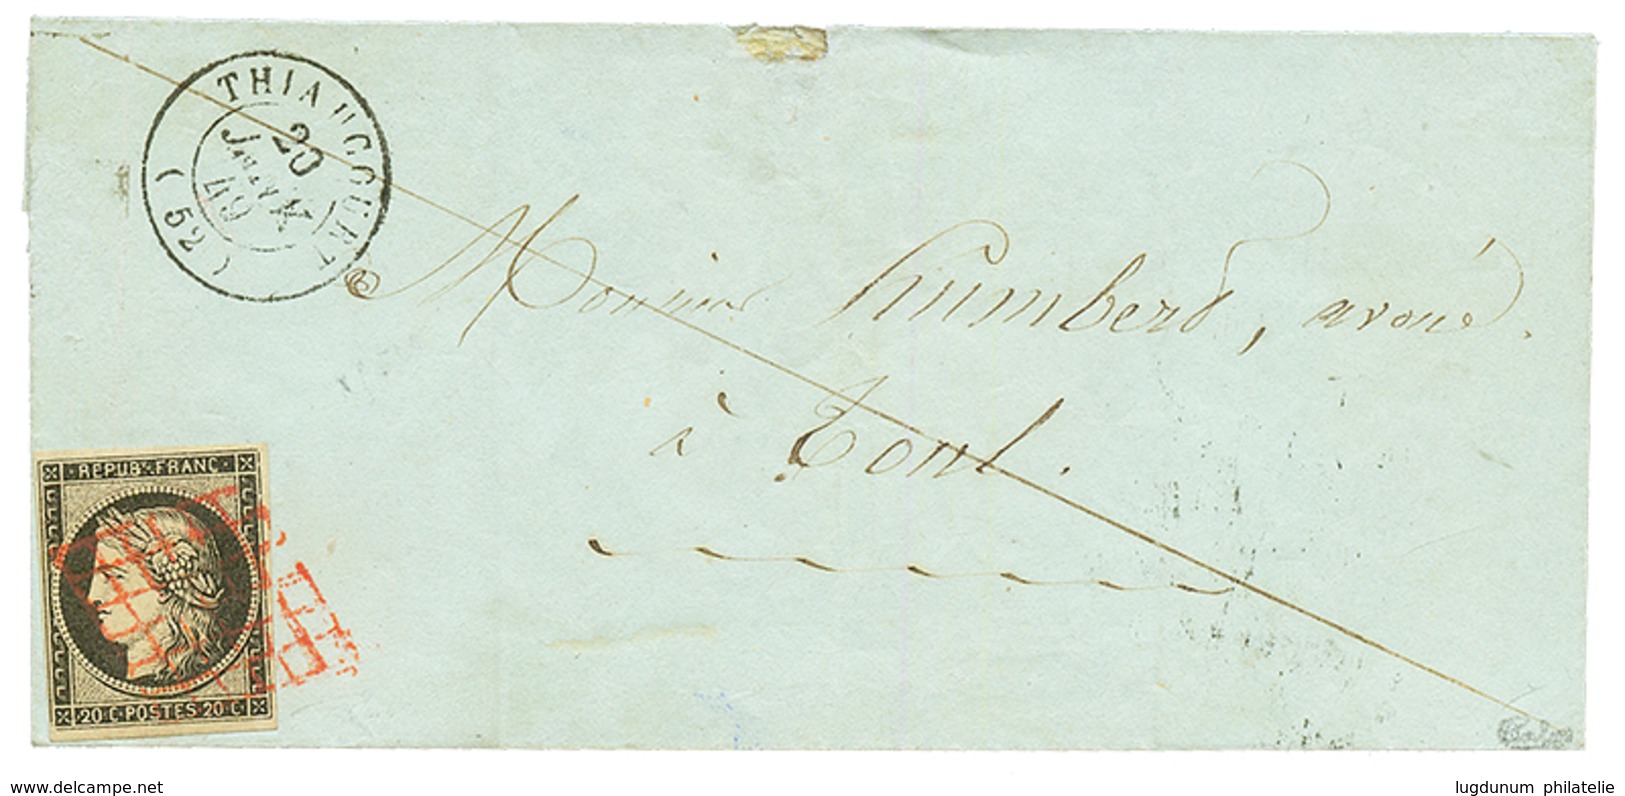 THIAUCOURT
20
JANV
49
(52)
Monsieur Humbert, avoué.
à Toul.
REPUB. FRANC.
20 C. POSTES 20 C
www.delcampe.net
lugdunum philatelie